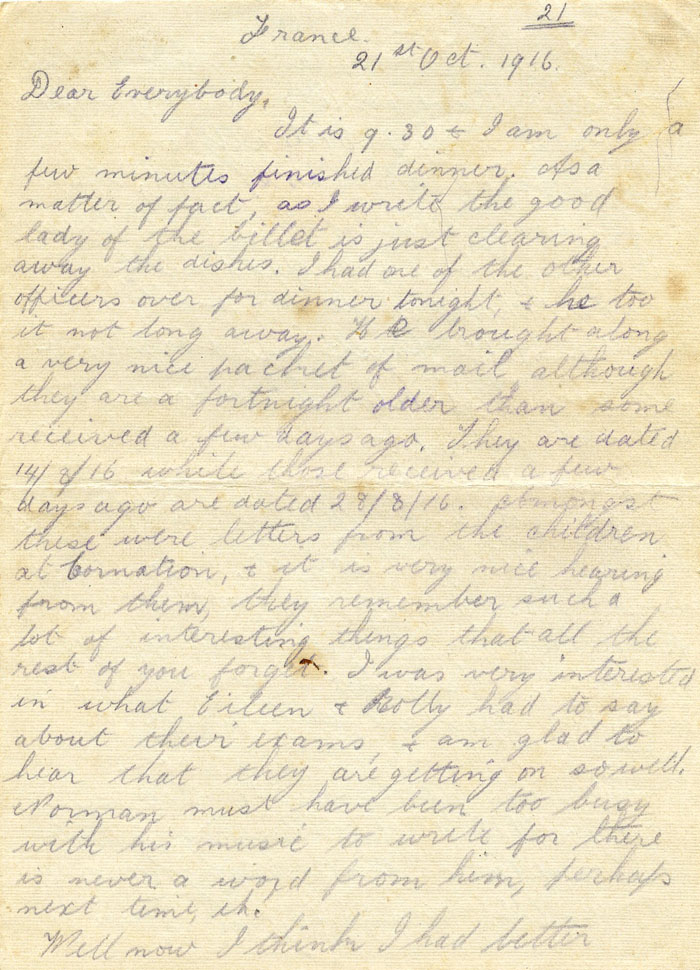 21
France.
21st Oct. 1916.
Dear Everybody,
It is 9.30 & I am only a
few minutes finished dinner. As a
matter of fact, as I write the good
lady of the billet is just clearing
away the dishes. I had one of the other
officers over for dinner tonight, & he too
it not long away. He brought along
a very nice packet of mail although
they are a fortnight older than some
received a few days ago. They are dated
14/8/16 while those received a few
days ago are dated 28/8/16. Amongst
these were letters from the children
at Cornation, & it is very nice hearing
from them, they remember such a
lot of interesting things that all the
rest of you forget. I was very interested
in what Eileen & Holly had to say
about their exams, & am glad to
hear that they are getting on so well.
Norman must have been too busy
with his music to write for there
is never a word from him, perhaps
next time, eh.
Well now I think I had better